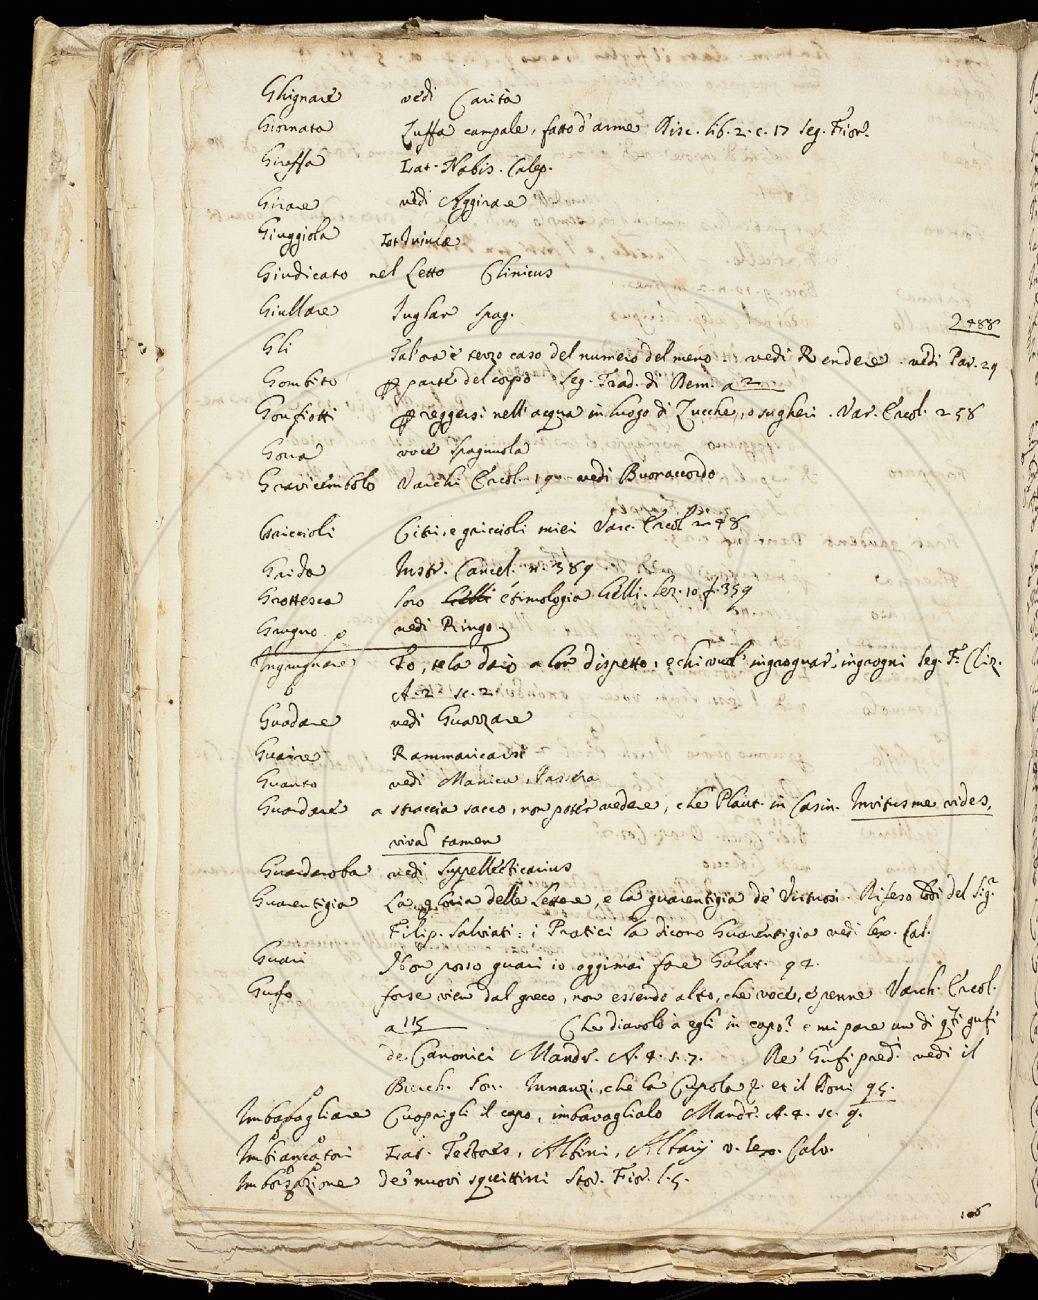 Ghignare vedi Carità
Giornata Zuffa campale, fatto d'arme Disc. lib. 2. c. 17 Seg. Fior.
Giraffa Lat. Nabis. Calep.
Girare vedi Aggirare
Giuggiola Lat
Giudicato nel Letto Clinicus
Giullare Juglar spag.
2488
Gli Talora è terzo caso del numero del meno: vedi Rendere. vedi Par. 29
Gombito parte del corpo Seg. Trad. di Dem. a 2
Gonfiotti reggersi nell'acqua in luogo di Zucche, o sugheri. Var. Ercol. 258
Gora voce spagnuola
Gravicembolo Varchi Ercol. vedi Buonaccordo
Griccioli Citi, e griccioli miei Varc. Ercol 248
Grida Instr. Cancel. n. 389
Grottesca loro Gelli etimologia Gelli. lez. 10. f. 359
Grugno vedi Ringo
Ingrugnare To, te la dario a lor dispetto, e chi vuol ingrognar, ingrogni Seg. F. Cliz.
A. 2. sc. 2.
Guadare vedi Guazzare
Guaire Rammaricarsi
Guanto vedi Manica,
Guardare a straccia sacco, non poter vedere, che Plaut. in Casin. Invitus me vides,
tamen
Guardaroba vedi Suppellecticarius
Guarentigia La gloria delle Lettere, e la guarentigia de' Virtuosi. del Sig.r
Filip. Salviati: i Pratici la dicono Guarentigia vedi lex. Cal.
Guari Non posso guari io oggimai fare Galat. 92.
Gufo forse vien dal greco, non essendo altro, che voce, e penne Varch. Ercol.
a 115 Che diavolo à egli in capo? e mi pare un di q.ti gufi
de Canonici Mandr. A. 4. s. 7. Re' Gufi pred. vedi il
Burch. Son. Innanzi, che la Cupola et il 95.
Imbavagliare Cuoprigli il capo, imbavaglialo Mandr. A. 4. sc. 9.
Imbiancatori Lat. Tectores, Albini, Albarij v. lex. Calv.
Imborsazione de' nuovi squittini Stor. Fior. l. 5.
106